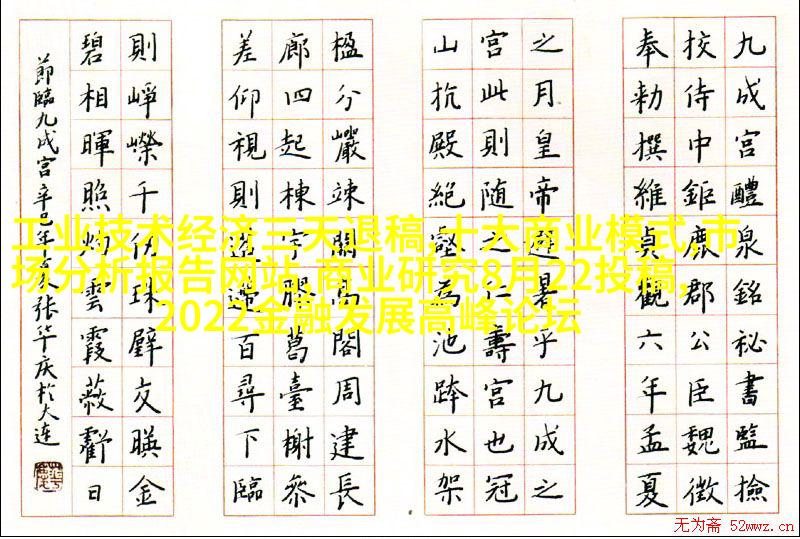 九成宮醴泉銘秘書監撿
挍侍中鉅鹿郡公臣魏徵
奉勑撰維貞觀六年孟夏
之月皇帝避暑乎九成之
宮此則随之仁壽宮也冠
山抗殿絕壑為池跨水架
楹分巖竦闕高閣周建長
廊四起棟宇膠葛臺榭參
差仰視則迢遰百尋下臨
則崢嶸千仞珠壁交暎金
碧相暉照灼雲霞蔽虧日
節臨九成宮辛巳年 张华庆於大連
工业技术经济三天退稿,十大商业模式,市
场分析报告网站,商业研究8月22投稿,
2022金融发展高峰论坛
无为斋 52wwz.cn